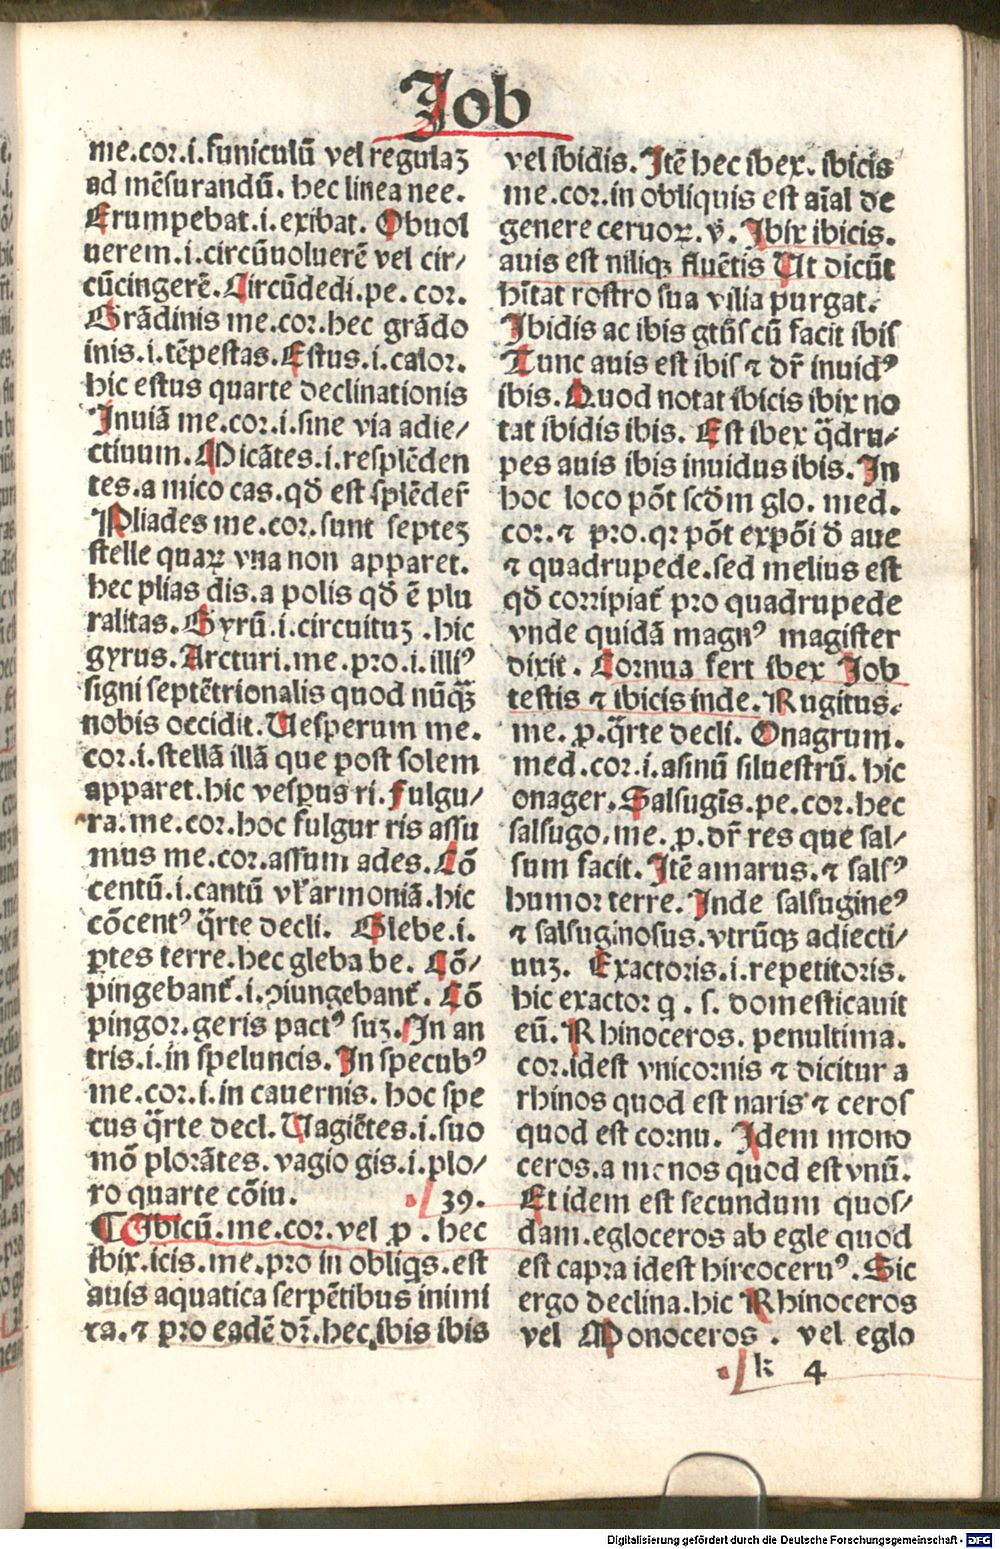 Job
me.cor.i.funiculū vel regulaꝫ
ad mēsurandū. hec linea nee.
Erumpebat.i.exibat. Obuol
uerem.i.circūuoluerē vel cir/
cūcingerē. Circūdedi.pe. cor.
Grādinis me.cor.hec grādo
inis.i.tēpestas. Estus.i.calor.
hic estus quarte declinationis
Inuiā me.cor.i.sine via adie/
ctiuum. Micātes.i.resplēden
tes.a mico cas.qđ est splēdeř
Pliades me.cor.sunt septeꝫ
stelle quaꝝ vna non apparet.
hec plias dis.a polis qđ ē plu
ralitas. Gyrū.i.circuituꝫ .hic
gyrus. Arcturi.me.pro.i.illiꝰ
signi septētrionalis quod nūꝙ̄
nobis occidit. Uesperum me.
cor.i.stellā illā que post solem
apparet.hic vesꝑus ri. Fulgu/
ra.me.cor.hoc fulgur ris assu
mus me.cor.assum ades. Cō
centū.i.cantū vł armoniā.hic
cōcentꝰ q̄rte decli. Glebe.i.
ꝑtes terre.hec gleba be. Cō/
pingebant᷑.i.ꝯiungebant᷑. Cō
pingor.geris pactꝰ suꝫ. In an
tris.i.in speluncis. In specubꝰ
me.cor.i.in cauernis. hoc spe
cus q̄rte decl. Uagiētes.i.suo
mō plorātes.vagio gis.i.plo/
ro quarte cōiu. 39.
¶ Ibicū.me.cor.vel ꝓ . hec
ibix.icis.me.pro in obliqs.est
auis aquatica serpētibus inimi
ca.⁊ pro eadē dꝛ.hec ibis ibis
vel ibidis. Itē hec ibex. ibicis
me.cor.in obliquis est aīal de
genere ceruoꝝ.ṽ. Ibix ibicis.
auis est niliqꝫ fluētis Ut dicūt
hītat rostro sua vilia purgat.
Ibidis ac ibis gtūs cū facit ibis
Tunc auis est ibis ⁊ dr̄ inuidꝰ
ibis. Quod notat ibicis ibix no
tat ibidis ibis. Est ibex q̄dru/
pes auis ibis inuidus ibis. In
hoc loco pōt scđm glo. med.
cor. ⁊ pro.qꝛ pōt expōi đ aue
⁊ quadrupede.sed melius est
qđ corripiat᷑ pro quadrupede
vnde quidā magnꝰ magister
dixit. Cornua fert ibex Job
testis ⁊ ibicis inde. Rugitus.
me. ꝓ.q̄rte decli. Onagrum.
med.cor.i.asinū siluestrū. hic
onager. Salsugīs.pe.cor.hec
salsugo.me. ꝓ.dr̄ res que sal/
sum facit. Itē amarus.⁊ salsꝰ
humor terre. Inde salsugineꝰ
⁊ salsuginosus.vtrūqꝫ adiecti/
uuꝫ. Exactoris.i.repetitoris.
hic exactor q̣ . s. domesticauit
eū. Rhinoceros. penultima.
cor.idest vnicornis ⁊ dicitur a
rhinos quod est naris ⁊ ceros
quod est cornu. Idem mono
ceros.a monos quod est vnū.
Et idem est secundum quos/
dam.egloceros ab egle quod
est capra idest hircoceruꝰ. Sic
ergo declina.hic Rhinoceros
vel Monoceros . vel eglo
k 4
Digitalisierung gefördert durch die Deutsche Forschungsgemeinschaft - DFG